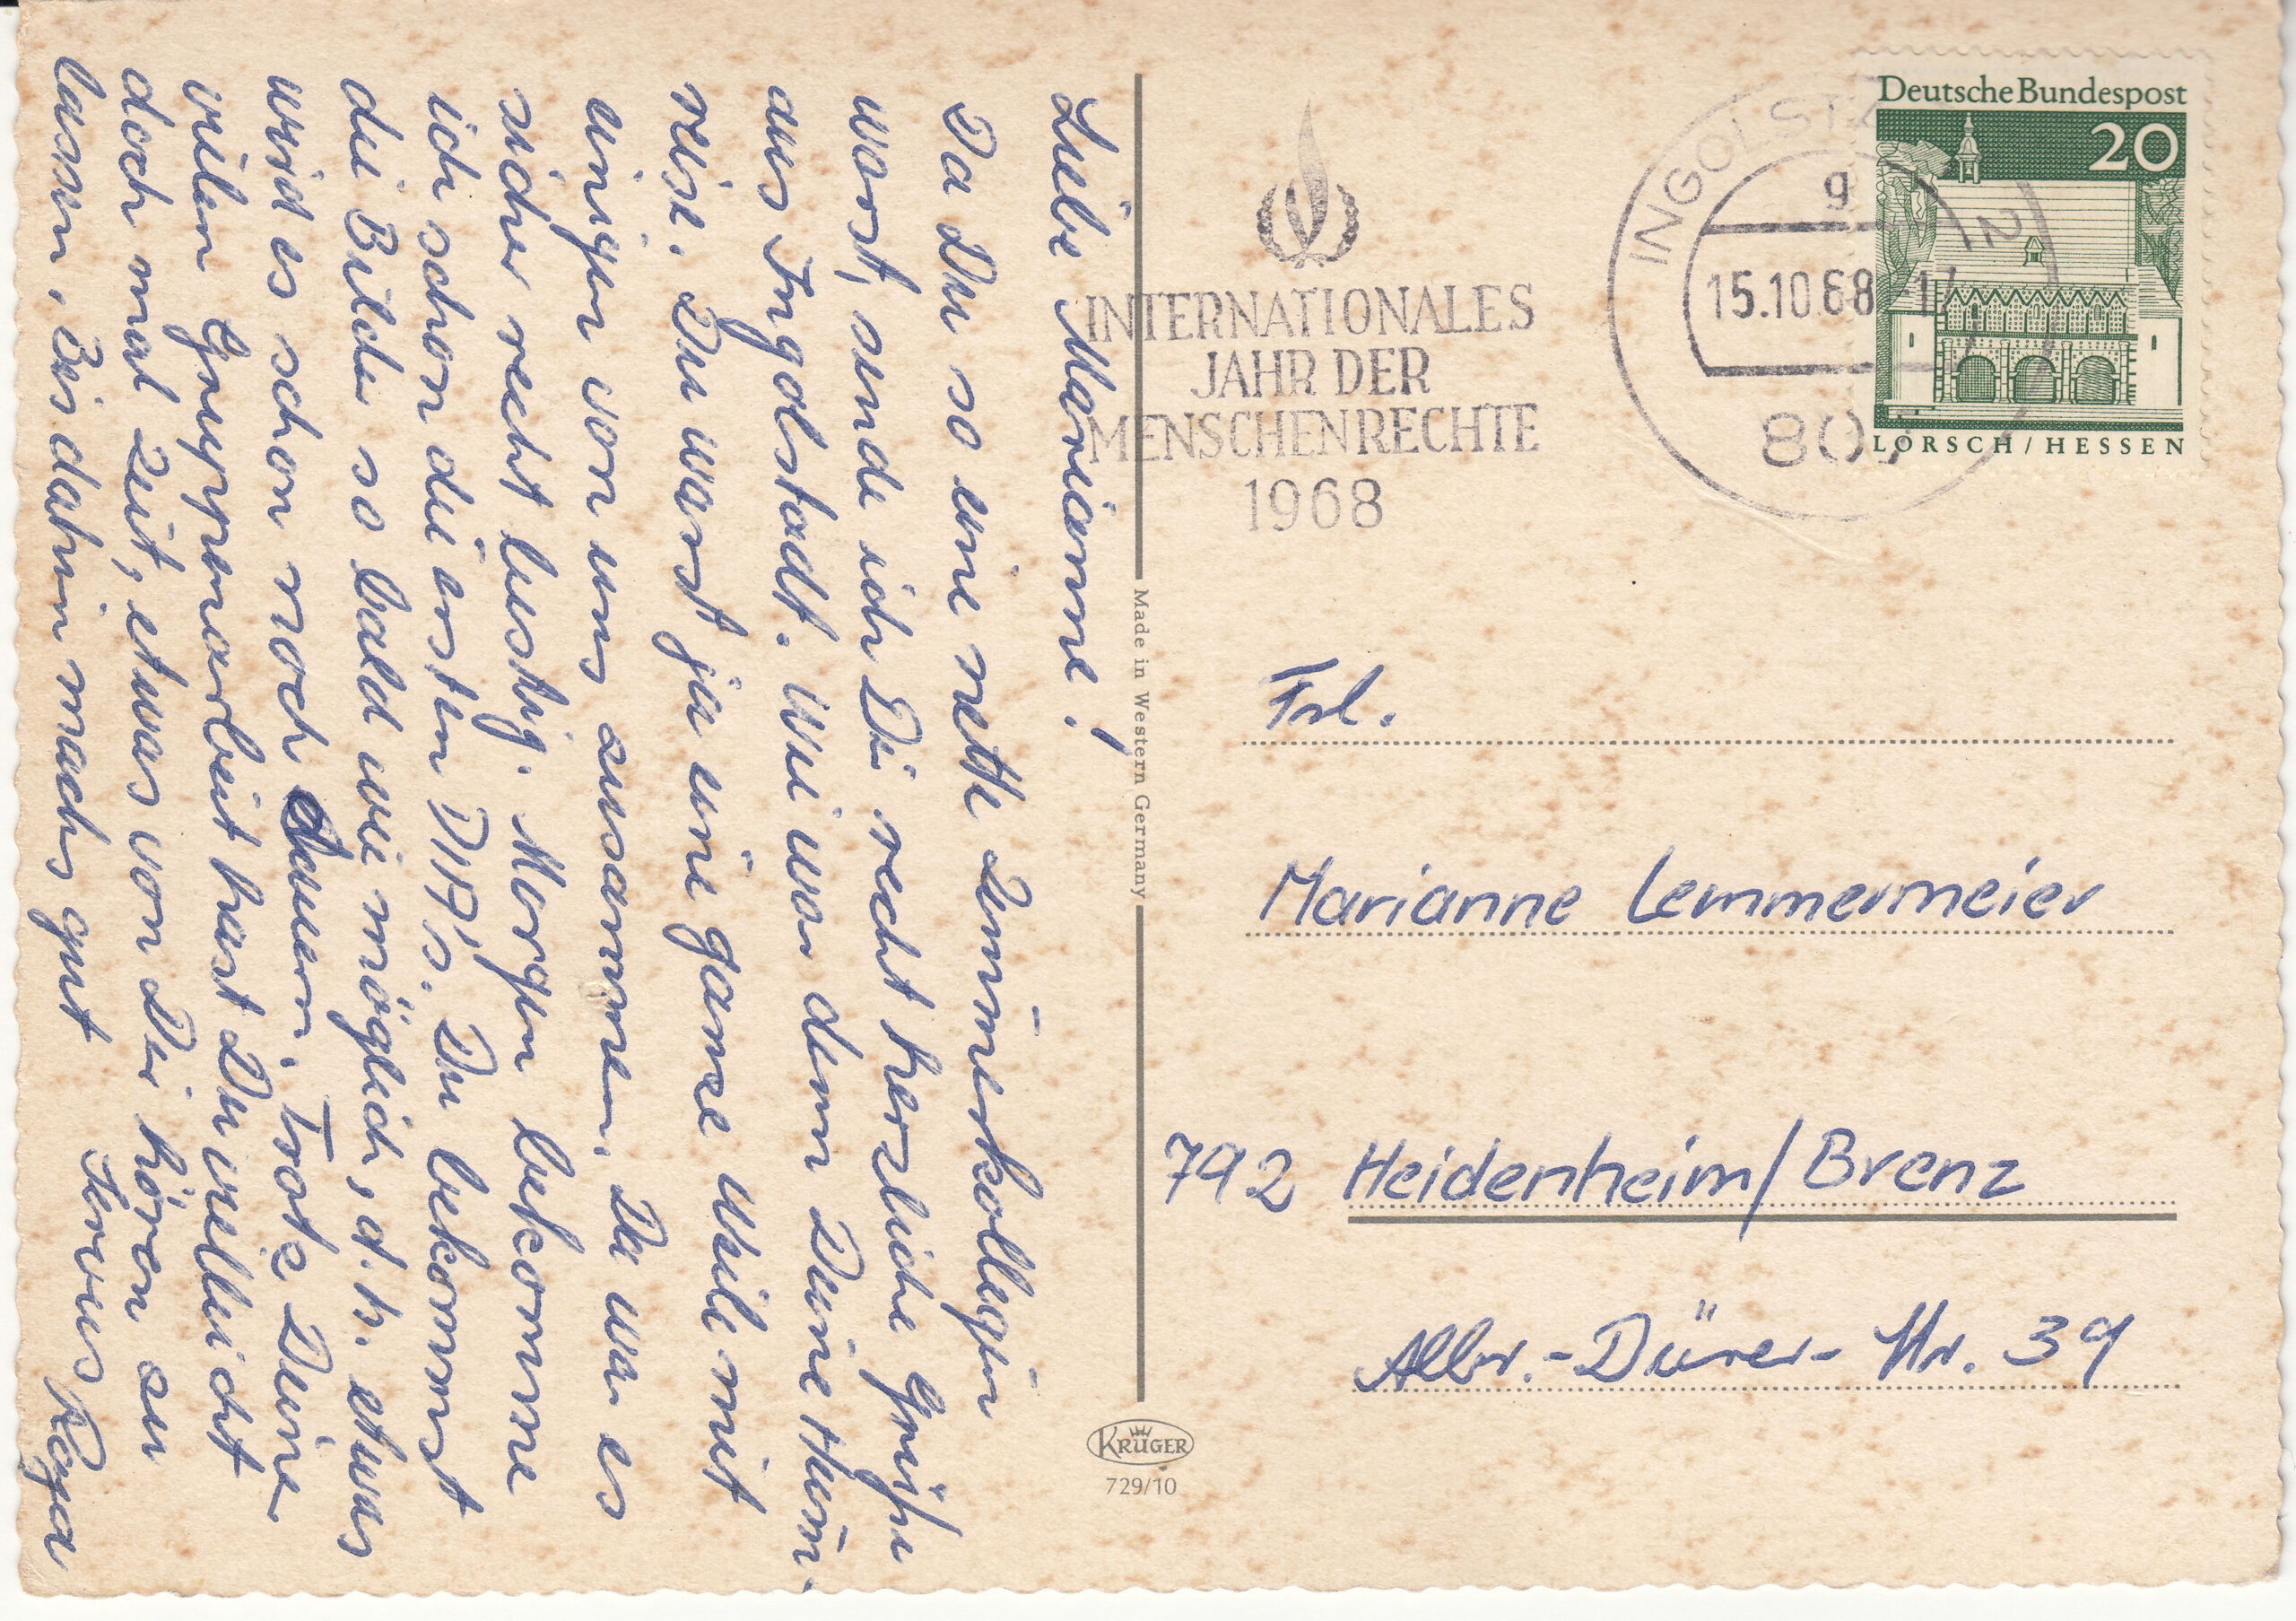 Liebe Marianne!
Da Du so eine nette Zimmerkollegin
warst, sende ich Dir recht herzliche Grüße
aus Ingolstadt. Wie war denn Deine Heim-
reise. Du warst ja eine ganze Weile mit
einigen von uns zusammen. Da war es
sicher recht lustig. Morgen bekomme
ich schon die ersten DIAs. Du bekommst
die Bilder so bald wie möglich, d.h. etwas
wird es schon noch dauern. Trotz Deiner
vielen Gruppenarbeit hast Du vielleicht
doch mal Zeit, etwas von Dir hören zu
lassen. Bis dahin machs gut
Servus
Deutsche Bundespost
20
LORSCH/HESSEN
INGOLSTA 2
g
15.10.68-17
807
INTERNATIONALES
JAHR DER
MENSCHENRECHTE
1968
Made in Western Germany
Frl.
Marianne Lemmermeier
792 Heidenheim/Brenz
Albr.-Dürer-Str. 39
KRÜGER
729/10